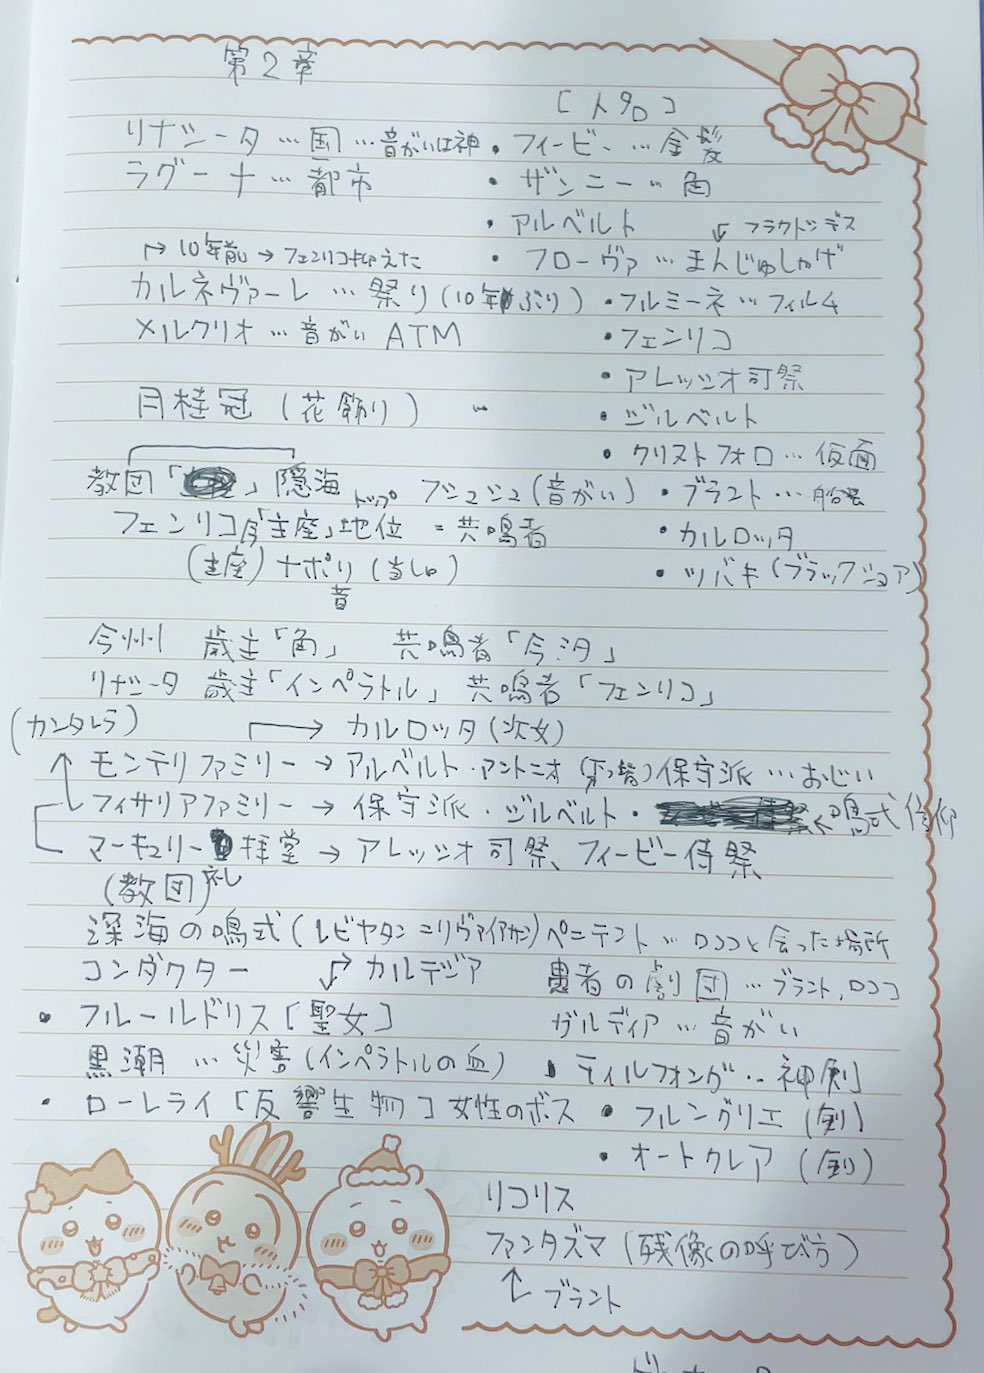 第2章
[人名]
リナシータ…国…音がいは神
・フィービー…金髪
ラグーナ…都市
・ザンニー…角
・アルベルト
↙フラクトシデス
↱10年前→フェンリコ抑えた
・フローヴァ…まんじゅしゃげ
カルネヴァーレ…祭り(10年ぶり)
・フルミーネ…フィルム
メルクリオ…音がいATM
・フェンリコ
・アレッシオ司祭
月桂冠(花飾り)
・ジルベルト
・クリストフォロ…仮面
教団「」隠海
トップ
ブジュジュ(音がい)
・ブラント…船長
フェンリコ「主座」地位=共鳴者
・カルロッタ
(主座)ナポリ(当しu)
音
・ツバキ(ブラックショア)
今州 歳主「角」 共鳴者「今汐」
リナシータ 歳主「インペラトル」 共鳴者「フェンリコ」
(カンタレラ)
→カルロッタ(次女)
モンテリファミリー→アルベルト・アントニオ()保守派…おじい
フィサリアファミリー→保守派・ジルベルト・←鳴式信仰
マーキュリー拝堂→アレッシオ司祭、フィービー侍祭
(教団)礼
深海の鳴式(レビヤタン=リヴァイアサン)
ペニテント…ロココと会った場所
コンダクター
カルテジア
愚者の劇団…ブラント,ロココ
・フルールドリス[聖女]
ガルディア…音がい
黒潮…災害(インペラトルの血)
・ティルフォング…神剣
・ローレライ[反響生物]女性のボス
・フルングリエ(剣)
・オートクレア(剣)
リコリス
ファンタズマ(残像の呼び方)
↑ブラント